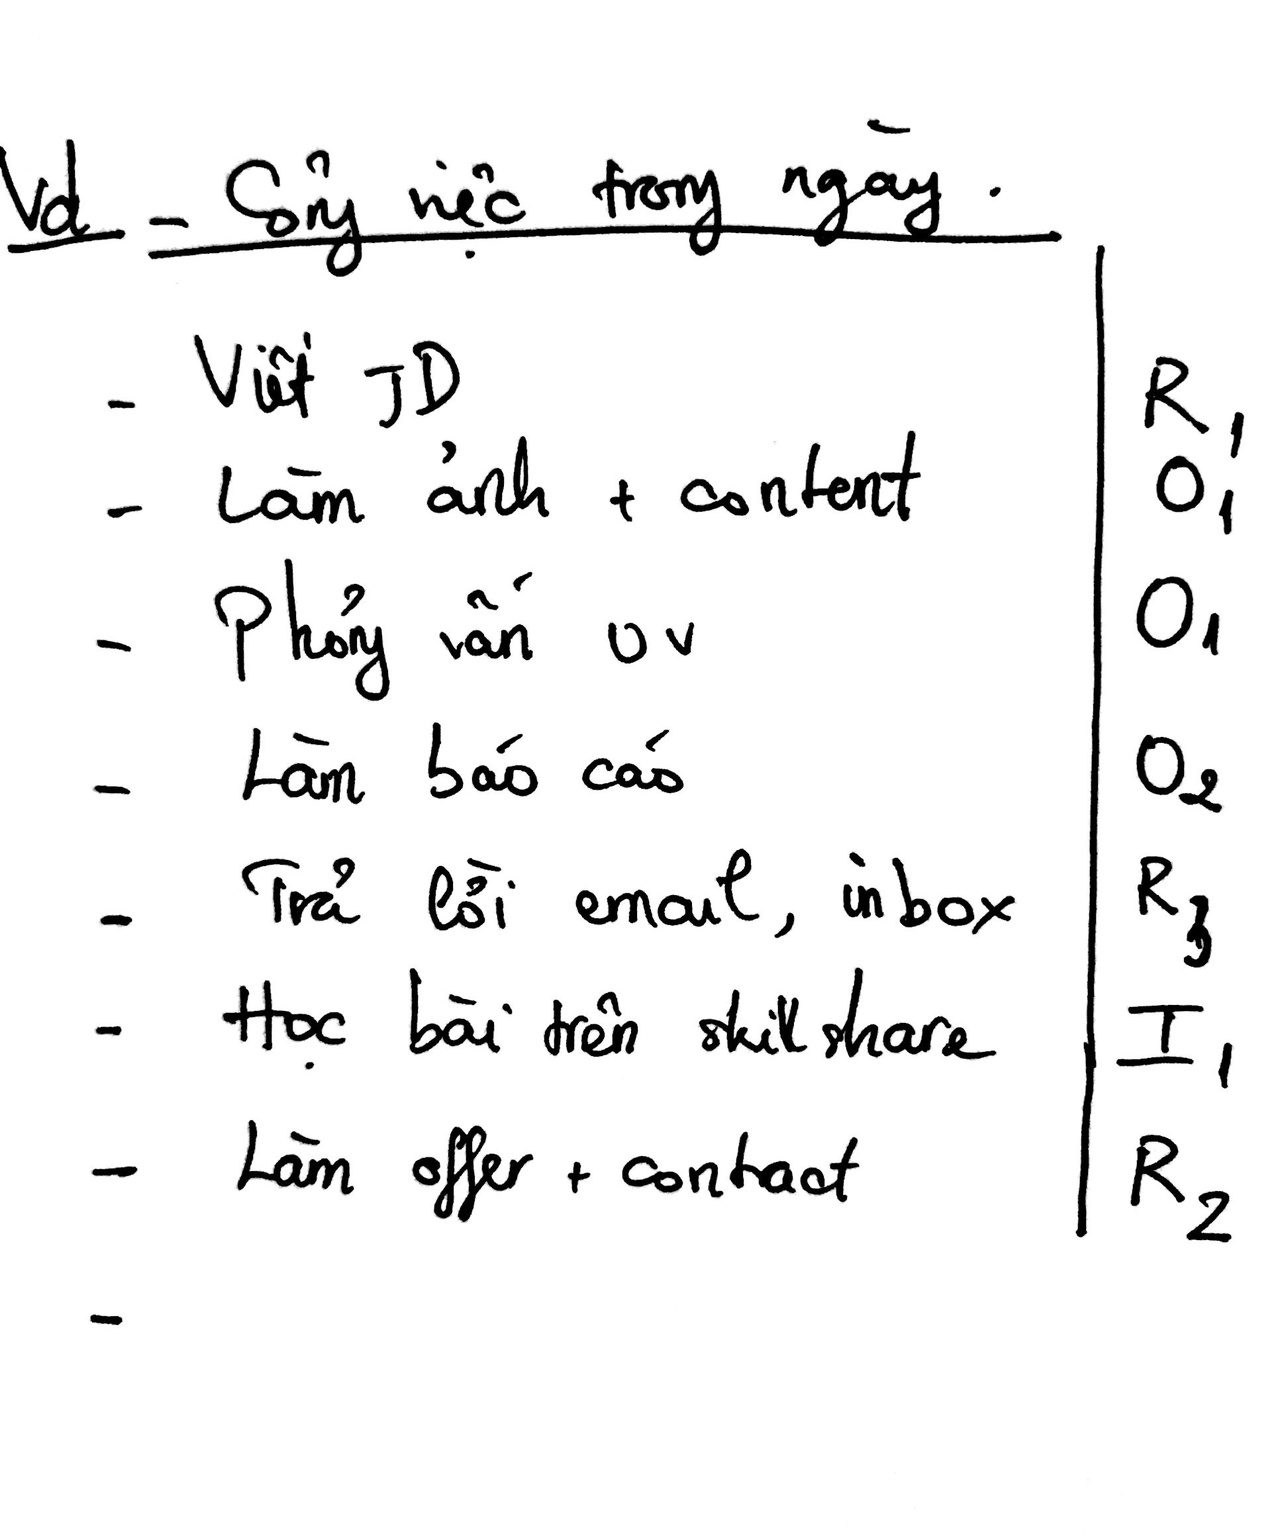 Vd - Công việc trong ngày.
- Viết JD R1
- Làm ảnh + content O1
- Phỏng vấn UV O1
- Làm báo cáo O2
- Trả lời email, inbox R3
- Học bài trên skillshare I1
- Làm offer + contract R2
-